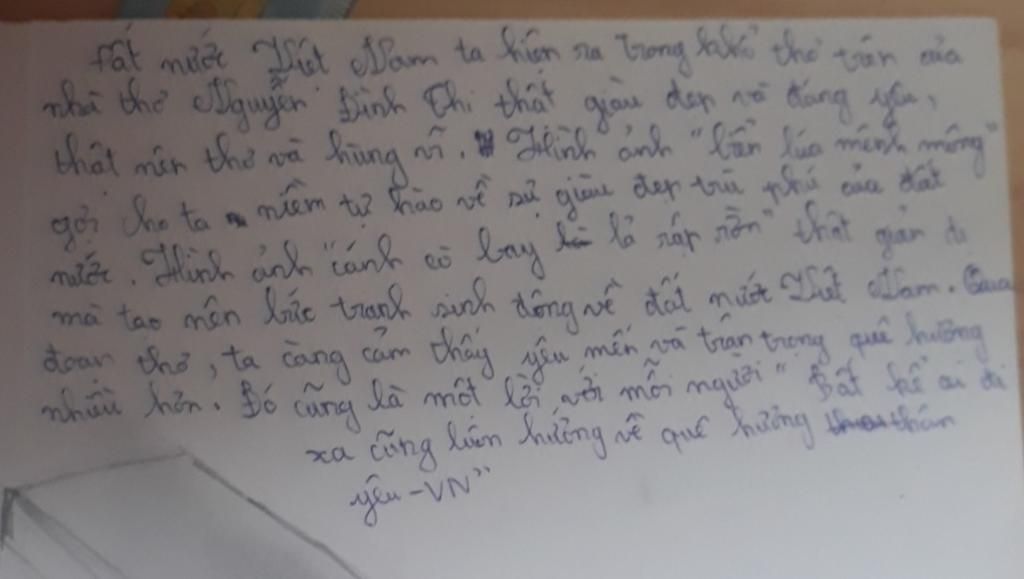 Đất nước Việt Nam ta hiện ra trong khổ thơ trên của
nhà thơ Nguyễn Đình Thi thật giàu đẹp và đáng yêu,
thật nên thơ và hùng vĩ. Hình ảnh "biển lúa mênh mông"
gợi cho ta niềm tự hào về sự giàu đẹp trù phú của đất
nước. Hình ảnh "cánh cò bay lả rập rờn" thật giản dị
mà tạo nên bức tranh sinh động về đất nước Việt Nam. Qua
đoạn thơ, ta càng cảm thấy yêu mến và trân trọng quê hương
nhiều hơn. Đó cũng là một lời với mỗi người "Bất kể ai đi
xa cũng luôn hướng về quê hương thân
yêu - VN"